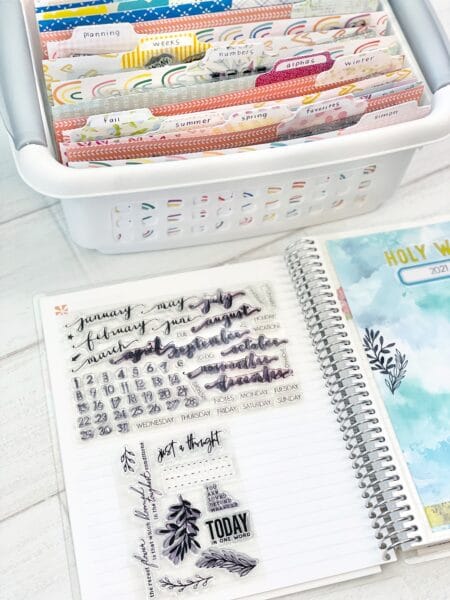 planning
weeks
numbers
alphas
winter
fall
summer
spring
favorites
simple
HOLY W
2021
january may july
february june august
march
april september october
november
december
DUE
VACATION
HOLIDAY
TO DO
NOTES MONDAY TUESDAY
WEDNESDAY THURSDAY FRIDAY SATURDAY SUNDAY
1 2 3 4 5 6 7
8 9 10 11 12 13 14
15 16 17 18 19 20 21
22 23 24 25 26 27 28
29 30 31
just a thought
YOU ARE
LOVED
BEYOND
MEASURE
TODAY
IN ONE WORD
the rarest flower is that which blooms in the toughest conditions